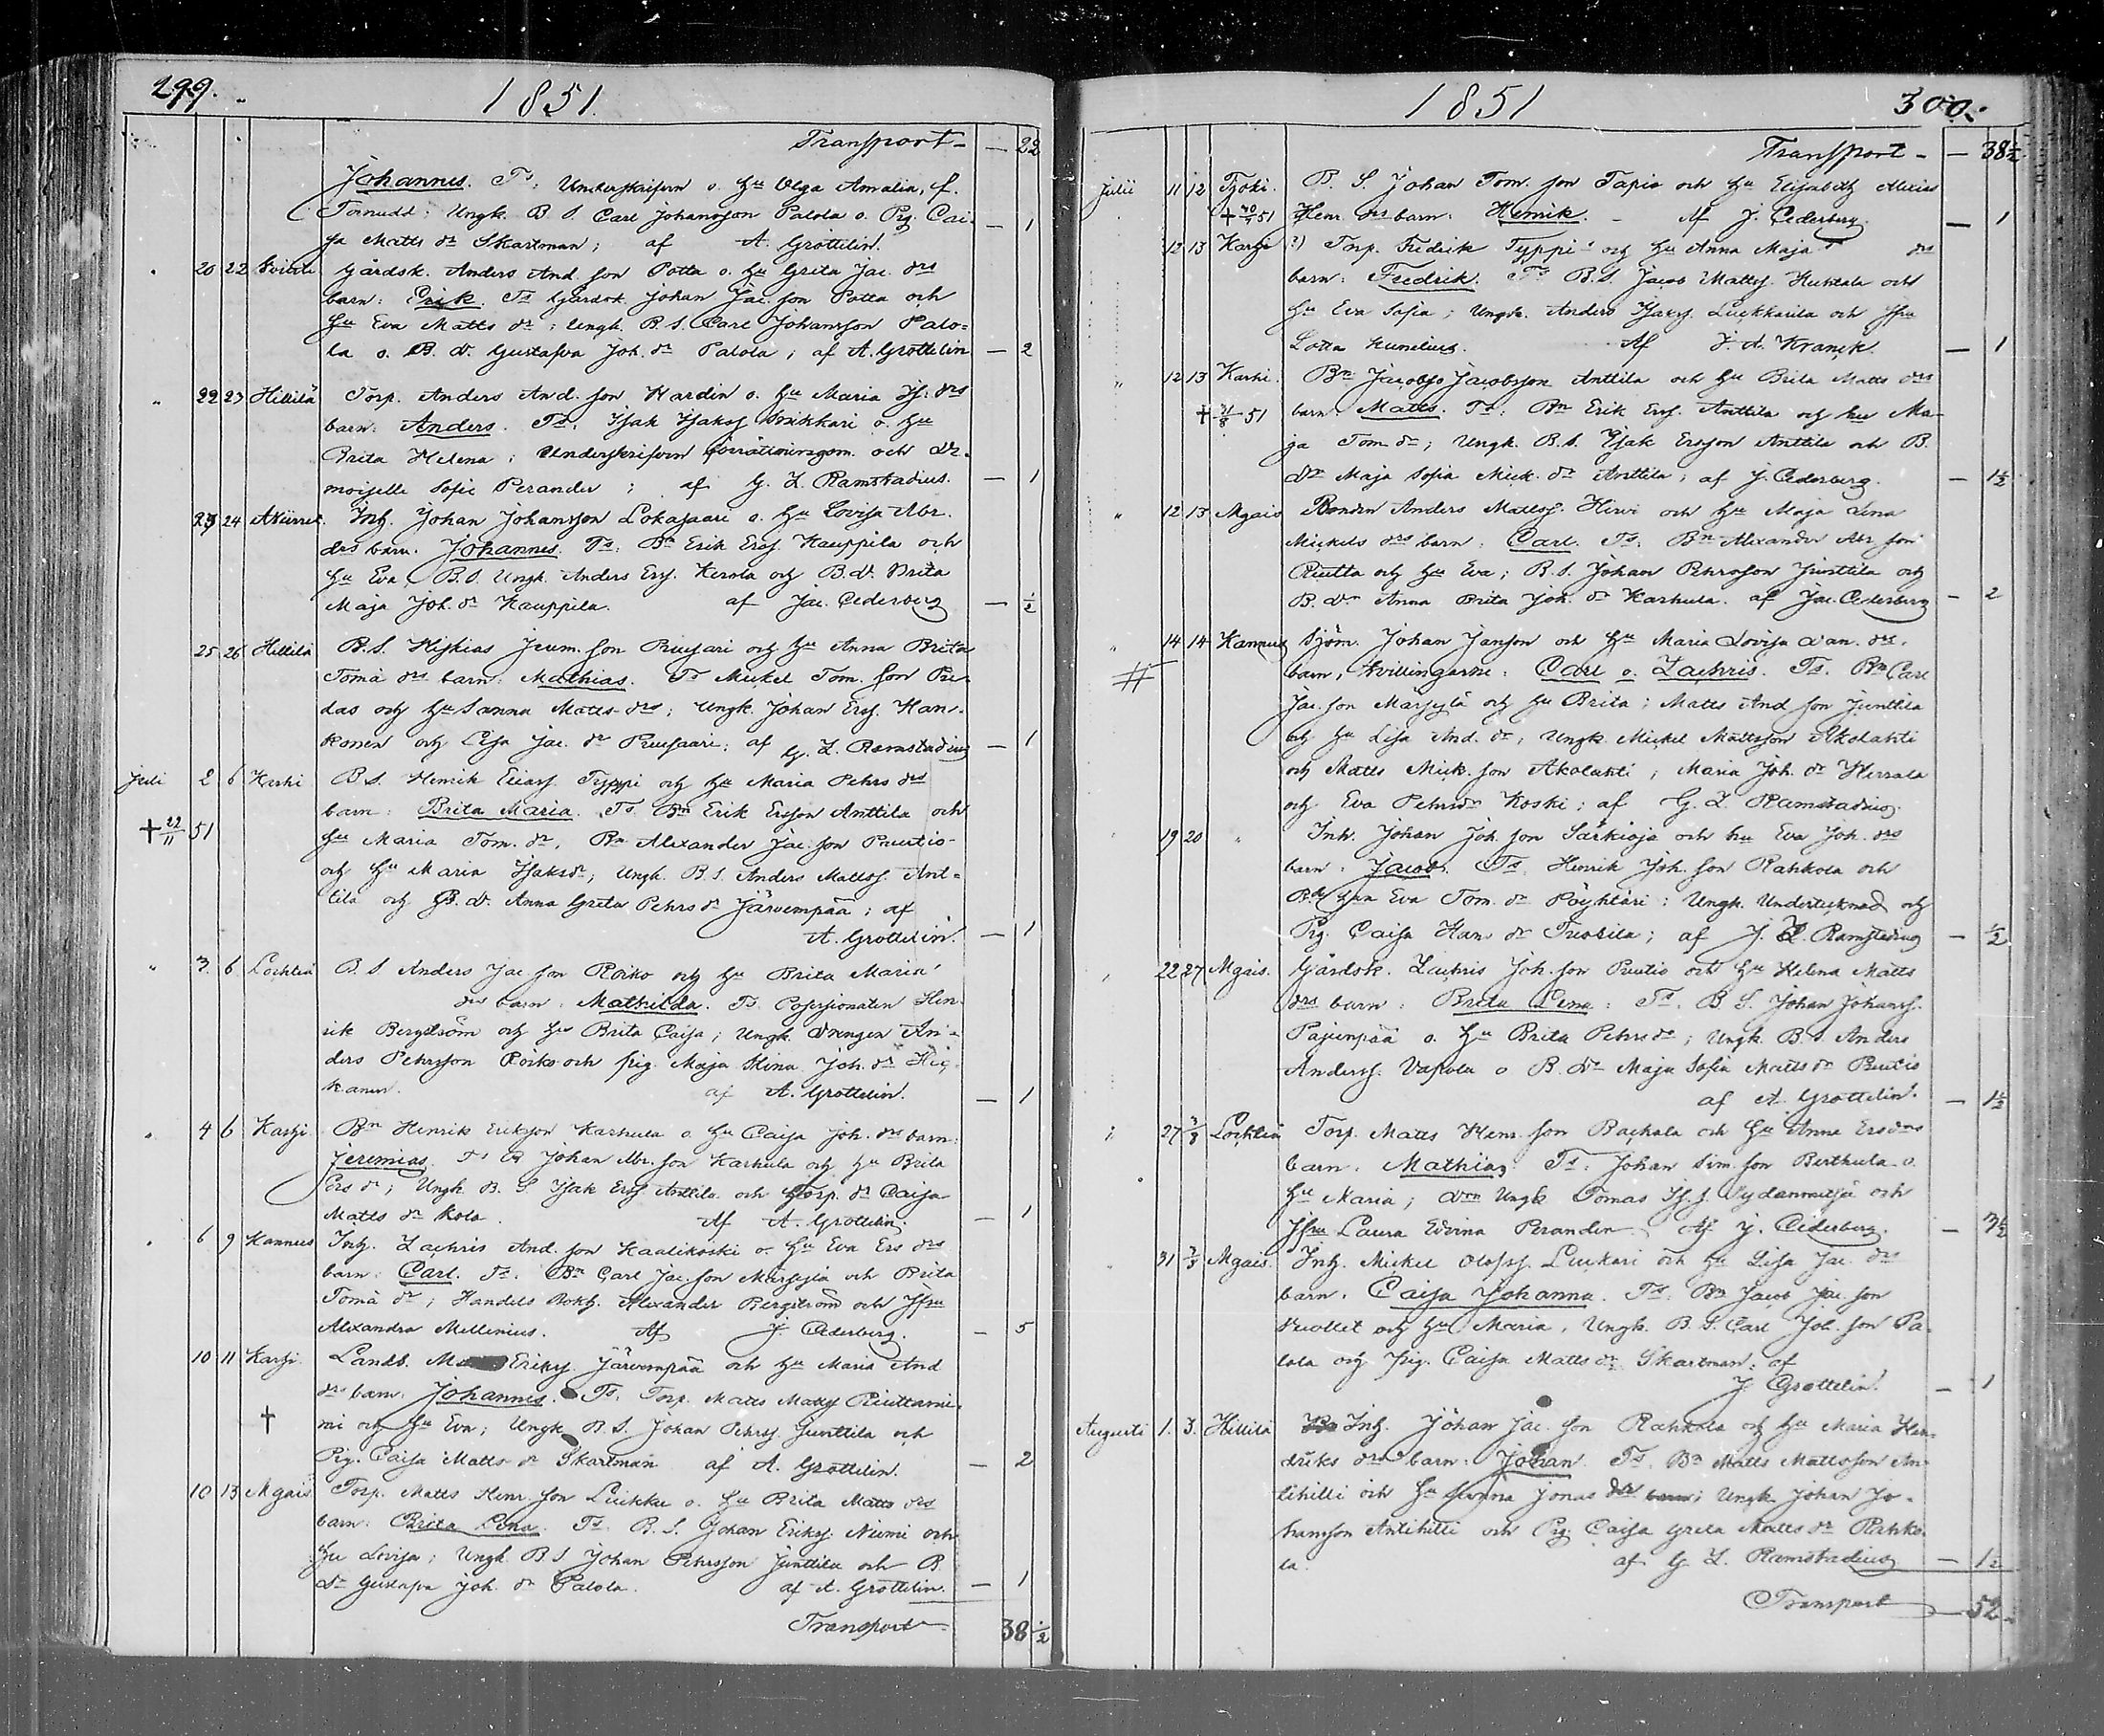 299. 1851.
Transport - — 22
Johannes. Ts. Underskrifvn o. hu Olga Amalia, f.
Tornudd; Ungk. B. S. Carl Johansson Palola o. Pig. Cai-
sa Matts dr Skartman; af A. Grottelin. — 1
20 22 Gårdsk. Anders And. son Potta o. hu Greta Jac. drs
barn: Erik. Ts Gårdsk. Johan Jac. son Potta och
hu Eva Matts dr; Ungk. B. S. Carl Johansson Palo=
la o. B. d. Gustafva Joh. dr Palola; af A. Grottelin — 2
" 22 23 Hillilä Torp. Anders And. son Hardin o. hu Maria Is. drs
barn: Anders. Ts. Isak Isakss o. hu
Brita Helena; Underskrifvn och De-
moiselle Sofie Perander; af G. L. Ramstadius. — 1
23 24 Inh. Johan Johansson Lokasaari o. hu Lovisa Abr.
drs barn. Johannes. Ts. Bn Erik Erss. Kauppila och
hu Eva; B. S. Ungk. Anders Erss. Kerola och B. d. Brita
Maja Joh. dr Kauppila. af Jac. Cederberg — 1/2
25 26 Hillilä B. S. Hiskias Jerem. son och hu Anna Brita
Tomä drs barn: Mathias. Ts Mickel Tom. son Pu-
das och hu Sanna Matts drs; Ungk. Johan Erss. Han-
konen och Lisa Jac. dr; af G. L. Ramstadius — 1
Juli 2 6 Karhi B. S. Henrik Eliass Typpi och hu Maria Pehrs drs
barn: Brita Maria. Ts. Bn Erik Ersson Anttila och
+ 22/11 51 hu Maria Tom. dr, Bn Alexander Jac. son Puutio
och hu Maria Isaks dr; Ungk. B. S. Anders Mattss. Ant=
tila och B. d. Anna Greta Pehrs dr Järvempää; af
A. Grottelin. — 1
" 3. 6 Lochteå B. S Anders Jac. son Roiko och hu Brita Maria
drs barn: Mathilda. Ts. Possessionaten Hen-
rik Bergström och hu Brita Caisa; Ungk. Drengen An-
ders Pehrsson Roiko och pig. Maja Stina Joh. dr Hie-
kanen. af A. Grottelin. — 1
" 4 6 Karhi Bn Henrik Eriksson Karhula o. hu Caisa Joh. drs barn:
Jeremias. Ts B Johan Abr. son Karhula och hu Brita
Ers dr; Ungk. B. S. Isak Erss Anttila och Torp. dr Caisa
Matts dr Kola. Af A. Grottelin. — 1
" 6 9 Kannus Inh. Zachris And. son Kaalikoski o. hu Eva Ers drs
barn: Carl. Ts. Bn Carl Jac. son Märsylä och Brita
Tomä dr; Handels Bokh. Alexander Bergström och Jfru
Alexandra Mellenius. Af J. Cederberg. — 5
10 11 Karhi Landb. Erikss. Järvempää och hu Maria And
drs barn. Johannes. Ts. Torp. Matts Matts
† och hu Eva; Ungk. B. S. Johan Pehrss. Junttila och
Pig. Caisa Matts dr Skartman af A. Grottelin. — 2
10 13 Mgais Torp. Matts Henr. son Luikku o. hu Brita Matts drs
barn: Brita Lena. Ts. B. S. Johan Erikss. Niemi och
hu Lovisa; Ungk. B S. Johan Pehrsson Junttila och B.
dr Gustafva Joh. dr Palola. af A. Grottelin. — 1
Transport 38 1/2
1851 300.
Transport - — 38 1/2
Julii 11 12 B. S. Johan Tom. son Tapio och hu Elisabeth
51 Henr. drs barn: Henrik. - Af J. Cederberg — 1
12 13 Karhi Torp. Fredrik Typpi och hu Anna Maja drs
barn: Fredrik. Ts B. S. Jacob Mattss. Huhtala och
hu Eva Sofia; Ungdr. Anders Isakss. Luckkarila och Jfru
Lotta Af J. A. Kranck. — 1
" 12 13 Karhi. Bn Jacobsson Anttila och hu Brita Matts drs
† 21/8 51 barn: Matts. Ts: Bn Erik Erss. Anttila och hu Ma-
ja Tom. dr; Ungk. B. S. Isak Ersson Anttila och B.
dr Maja Sofia Mick. dr Anttila; af J. Cederberg. — 1 1/2
" 12 13 Mgais Bonden Anders Mattss. Hirvi och hu Maja Lena
Mickels drs barn: Carl. Ts. Bn Alexander Abr. son
Ruutta och hu Eva; B. S. Johan Pehrsson Junttila och
B. dr Anna Brita Joh. dr Karhula. af Jac. Cederberg — 2
" 14 14 Kannus Sjöm. Johan Janson och hu Maria Lovisa Dan. drs.
# barn, tvillingarne: Carl o. Zachris. Ts. Bn Carl
Jac. son Märsylä och hu Brita; Matts And son Junttila
och hu Lisa And. dr; Ungk. Mickel Mattsson Akolahti
och Matts Mick. son Akolahti; Maria Joh. dr Herrala
och Eva Pehrs dr Koski; af G. L. Ramstadius.
19 20 " Inh. Johan Joh. son Särkioja och hu Eva Joh. drs
barn: Jacob. Ts. Henrik Joh. son Rahkola och
Eva Tom. dr Pöyhtäri; Ungk. Undertecknad och
Pig. Caisa Hans dr; af J. L. Ramstadius — 1/2
" 22 27 Mgais. Gårdsk. Zachris Joh. son Puutio och hu Helena Matts
drs barn: Brita Lena: Ts. B. S. Johan Johanss.
Pajunpää o. hu Brita Pehrs dr; Ungk. B. S. Anders
Anderss. o B. dr Maja Sofia Matts dr Puutio
af A. Grottelin. — 1 1/2
27 Lochteå Torp. Matts Henr. son Bachala och hu Anna Ers drs
barn. Mathias. Ts. Johan Sim. son Berthula o.
hu Maria; Ungk Tomas Is. s. Sydänmetsä och
Jfru Laura Edvina Perander. Af J. Cederberg.
31 Mgais. Inh. Mickel Olofss. Luckari och hu Lisa Jac. drs
barn. Caisa Johanna. Ts. Bn Jacob Jac. son
och hu Maria, Ungk. B. S. Carl Joh. son Pa-
lola och pig. Caisa Matts dr Skartman; af
J Grottelin. — 1
Augusti 1. 3. Hillilä Inh. Johan Jac. son Rahkola och hu Maria Hen-
driks drs barn: Johan. Ts. Bn Matts Mattsson An-
tihilli och hu Jonas dr; Ungk. Johan Jo-
hansson Antihilli och Pig. Caisa Greta Matts dr Rahko-
la. af G. L. Ramstadius — 1/2
Transport — 52 -